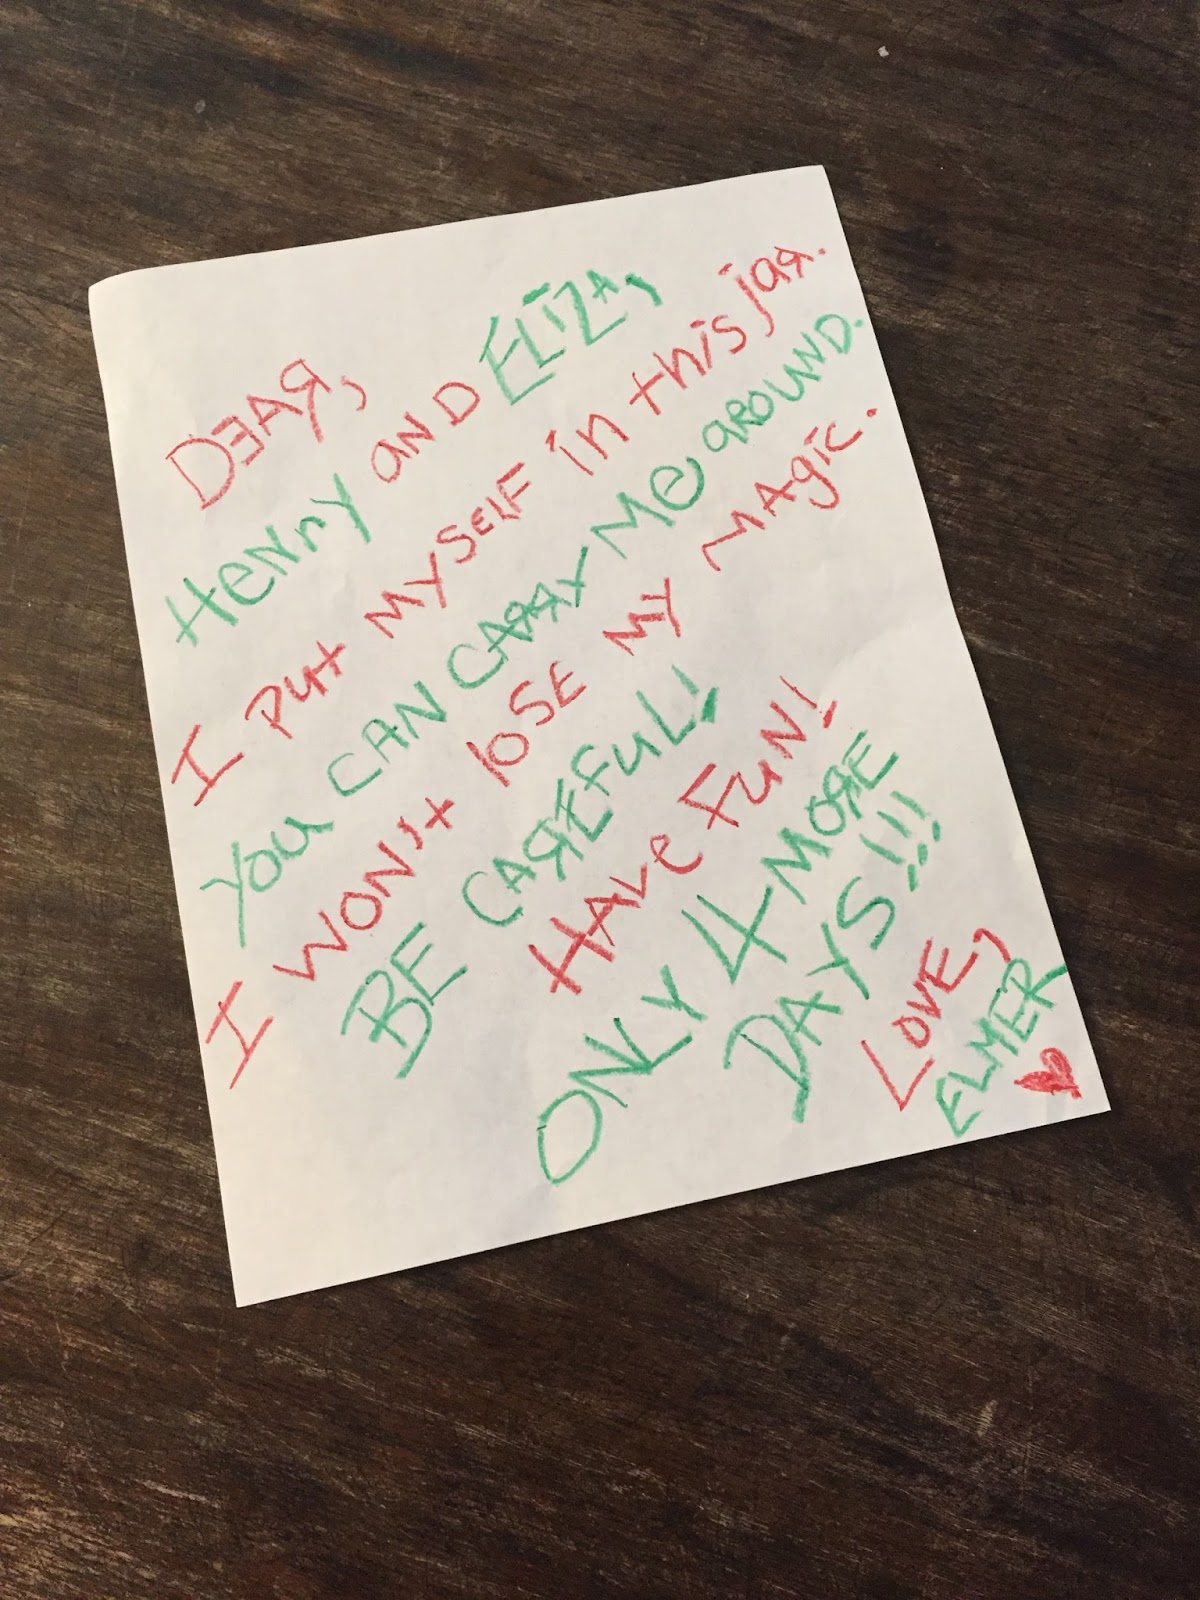 DEAR,
HENNY AND ELIZA,
I PUt MYSELF in this jaR.
YOU CAN CARRY Me aROUND.
I WON't lOSE MY MAgic.
BE CAREFUL!
HAVe FUN!
ONLY 4 MORE
DAYS!!!
LOVE,
ELMER